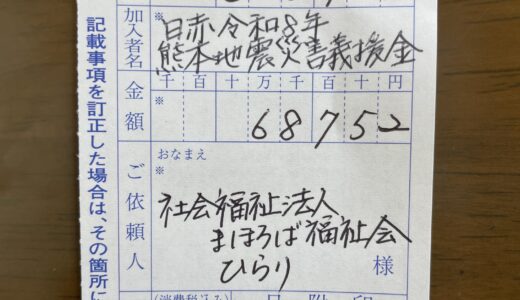 記載事項を訂正した場合は、その箇所に
加入者名
※
日赤令和8年
熊本地震災害義援金
金額
千百十万千百十円
※
68752
ご依頼人
おなまえ
※
社会福祉法人
まほろば福祉会
ひらり
様
(消費税込み)
日附印